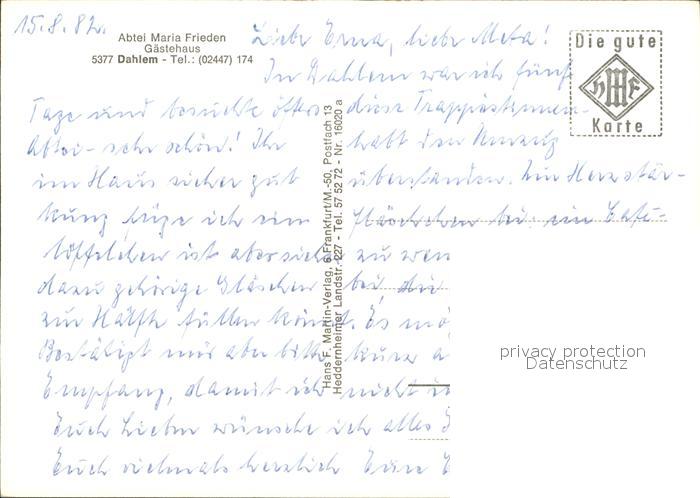 15.8.82.
Abtei Maria Frieden
Gästehaus
5377 Dahlem - Tel.: (02447) 174
Liebe Erna, liebe Meta!
In Dahlem war ich fünf
Tage und besuchte öfters diese Trappistinnen-
abtei - sehr schön! Ihr habt den Umzug
im Haus sicher gut überstanden. Zur Herzstär-
kung füge ich ein Fläschchen bei, ein Café-
löffelchen ist aber sicher zu wen
dazu gehörige Gläschen bei die
zur Hälfte füllen könnt. Es mö
Bestätigt mir aber bitte kurz
Empfang, damit ich nicht
Euch Lieben wünsche ich alles
Euch vielmals herzlich Eure
Die gute
HMF
Karte
Hans F. Martin-Verlag, 6 Frankfurt/M.-50, Postfach 13
Heddernheimer Landstr. 227 - Tel. 57 52 72 - Nr. 16020 a
privacy protection
Datenschutz